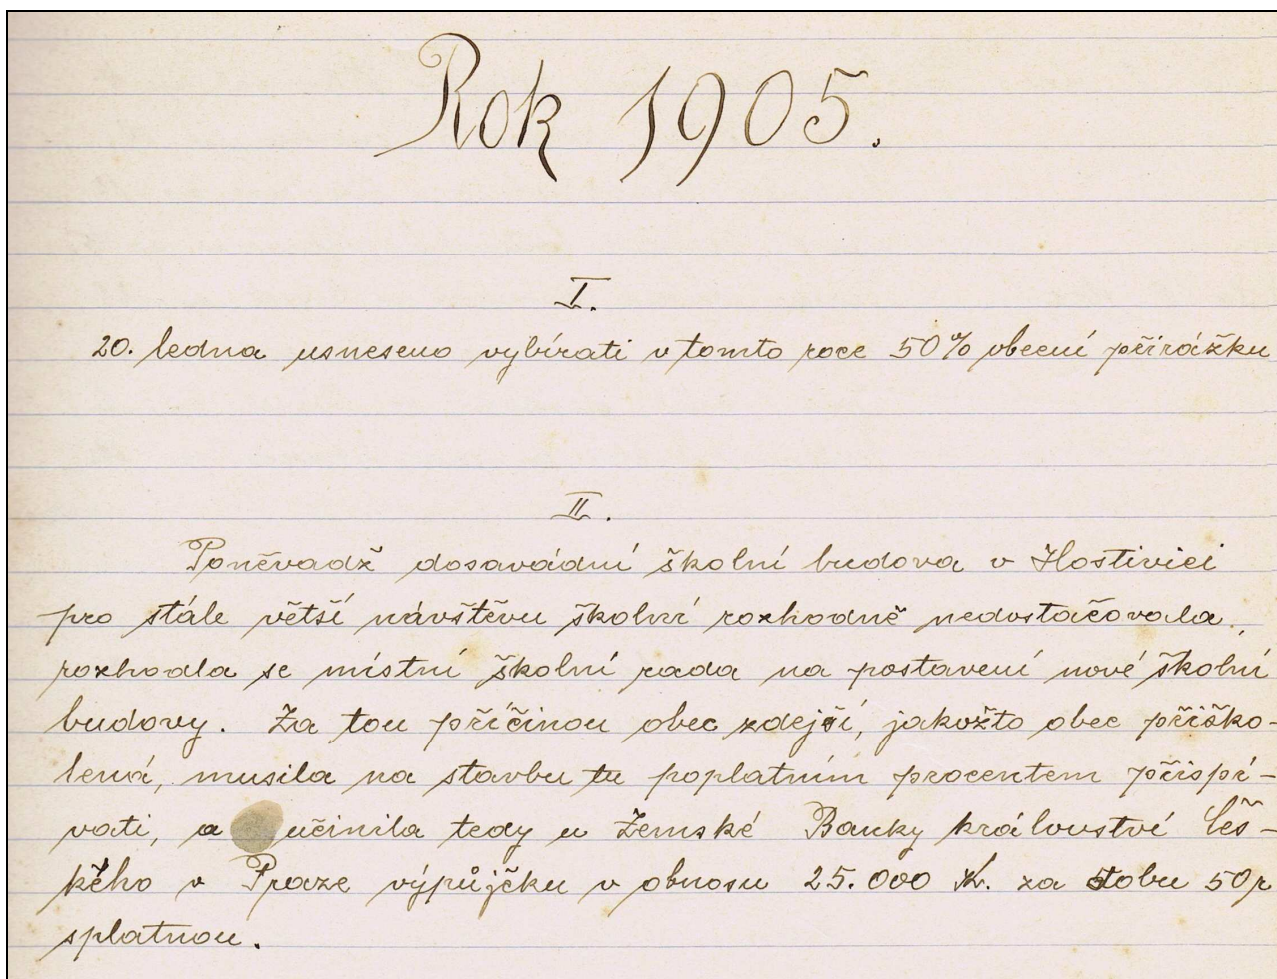 Rok 1905.
I.
20. ledna usneseno vybírati v tomto roce 50% obecní přirážku
II.
Poněvadž dosavádní školní budova v Hostivici
pro stále větší návštěvu školní rozhodně nedostačovala,
rozhodla se místní školní rada na postavení nové školní
budovy. Za tou příčinou obec zdejší, jakožto obec přiško-
lená, musila na stavbu tu poplatním procentem přispí-
vati, a učinila tedy u Zemské Banky království Čes-
kého v Praze výpůjčku v obnosu 25.000 K. za dobu 50 r
splatnou.